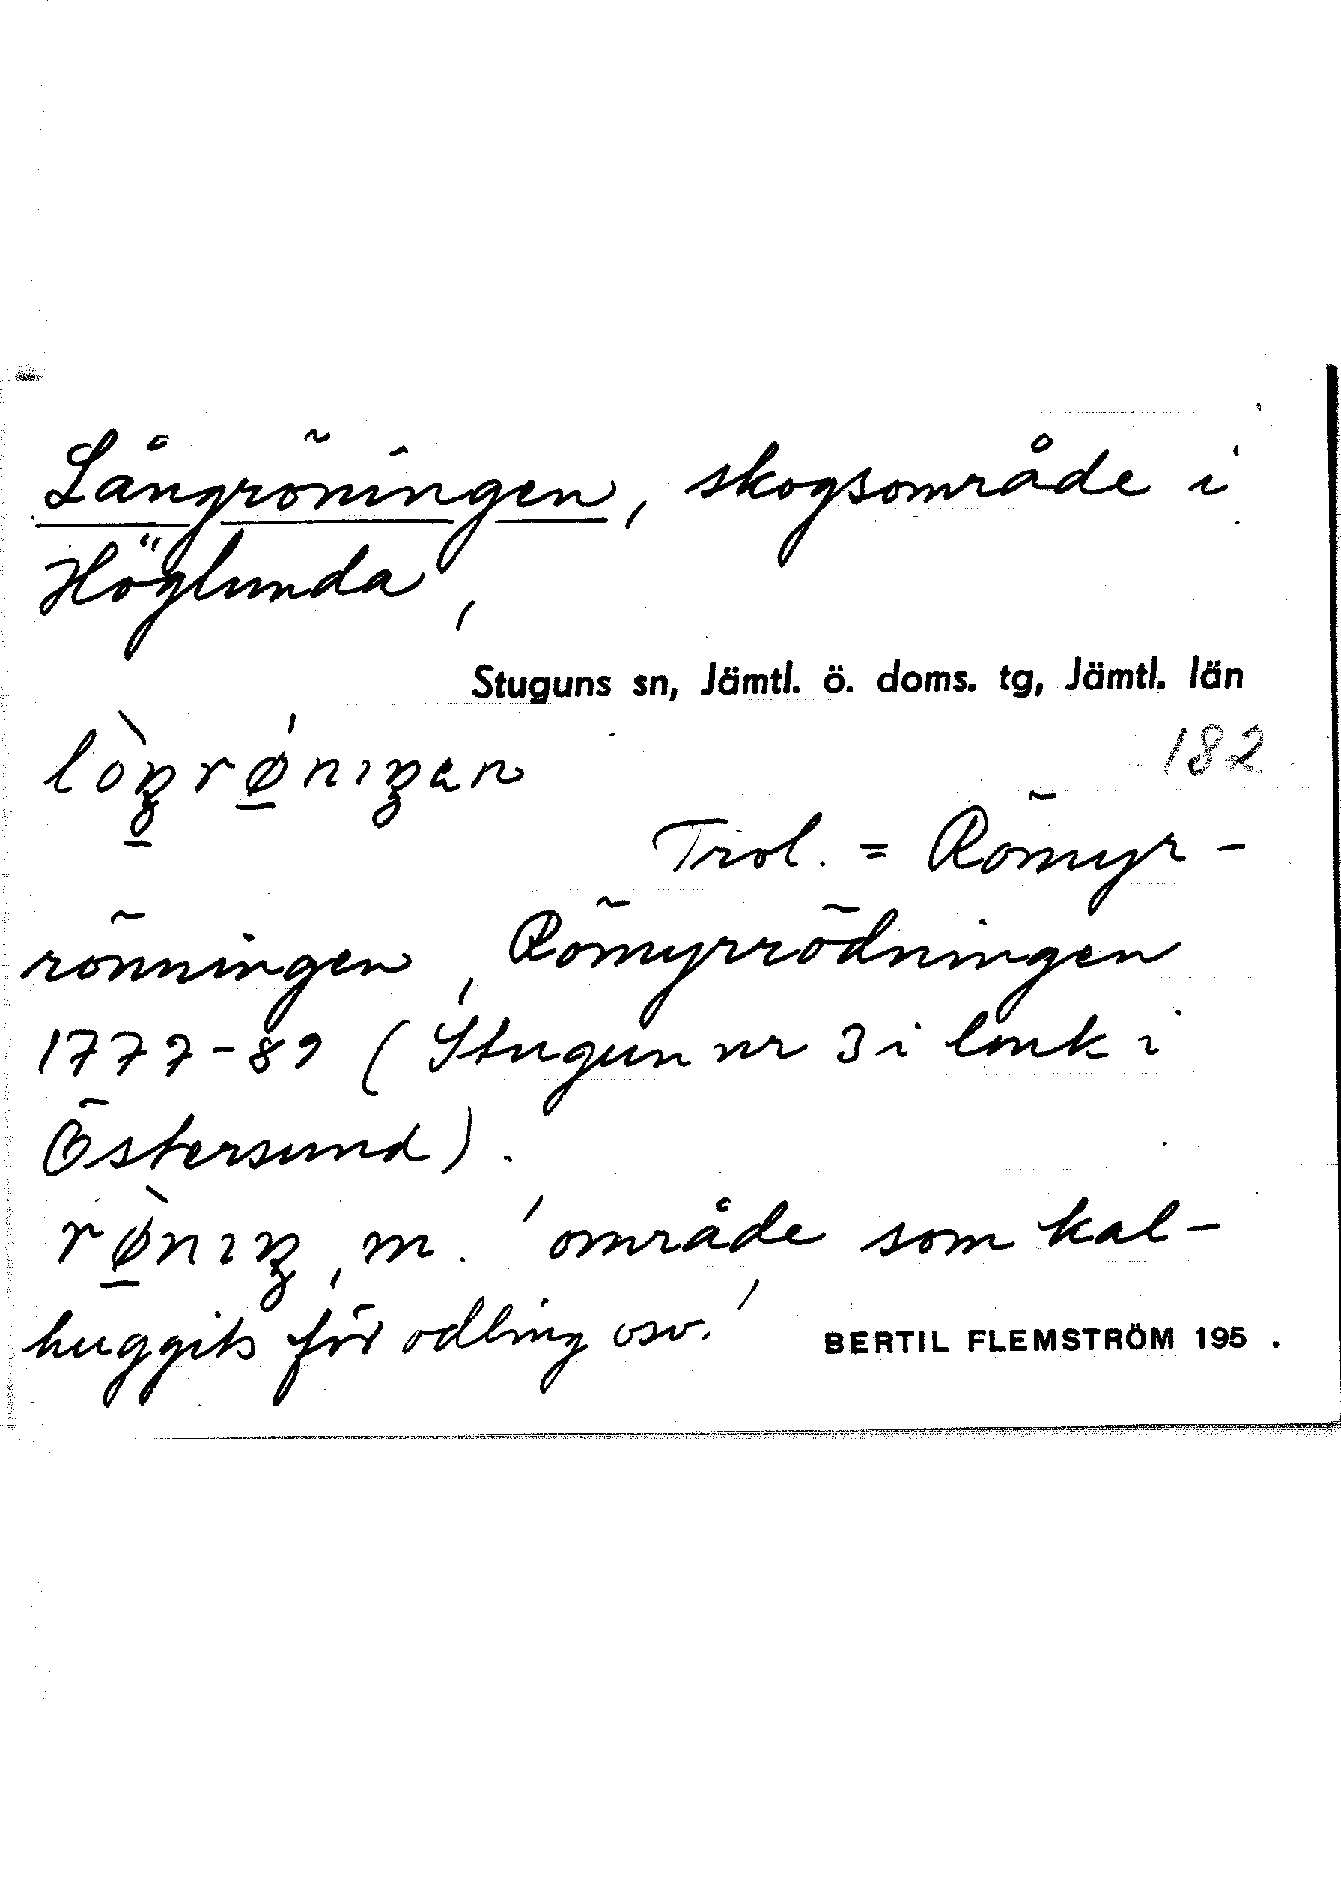 Långröningen, skogsområde i
Höglunda,
Stuguns sn, Jämtl. ö. doms. tg, Jämtl. län
lòŋrǿnıŋen
182
Trol. = Römyr-
rönningen, Römyrrödningen
1777-89 (Stugun nr 3 i lmk i
Östersund).
rø̀nıŋ, m. 'område som kal-
huggits för odling osv.'
BERTIL FLEMSTRÖM 195 .